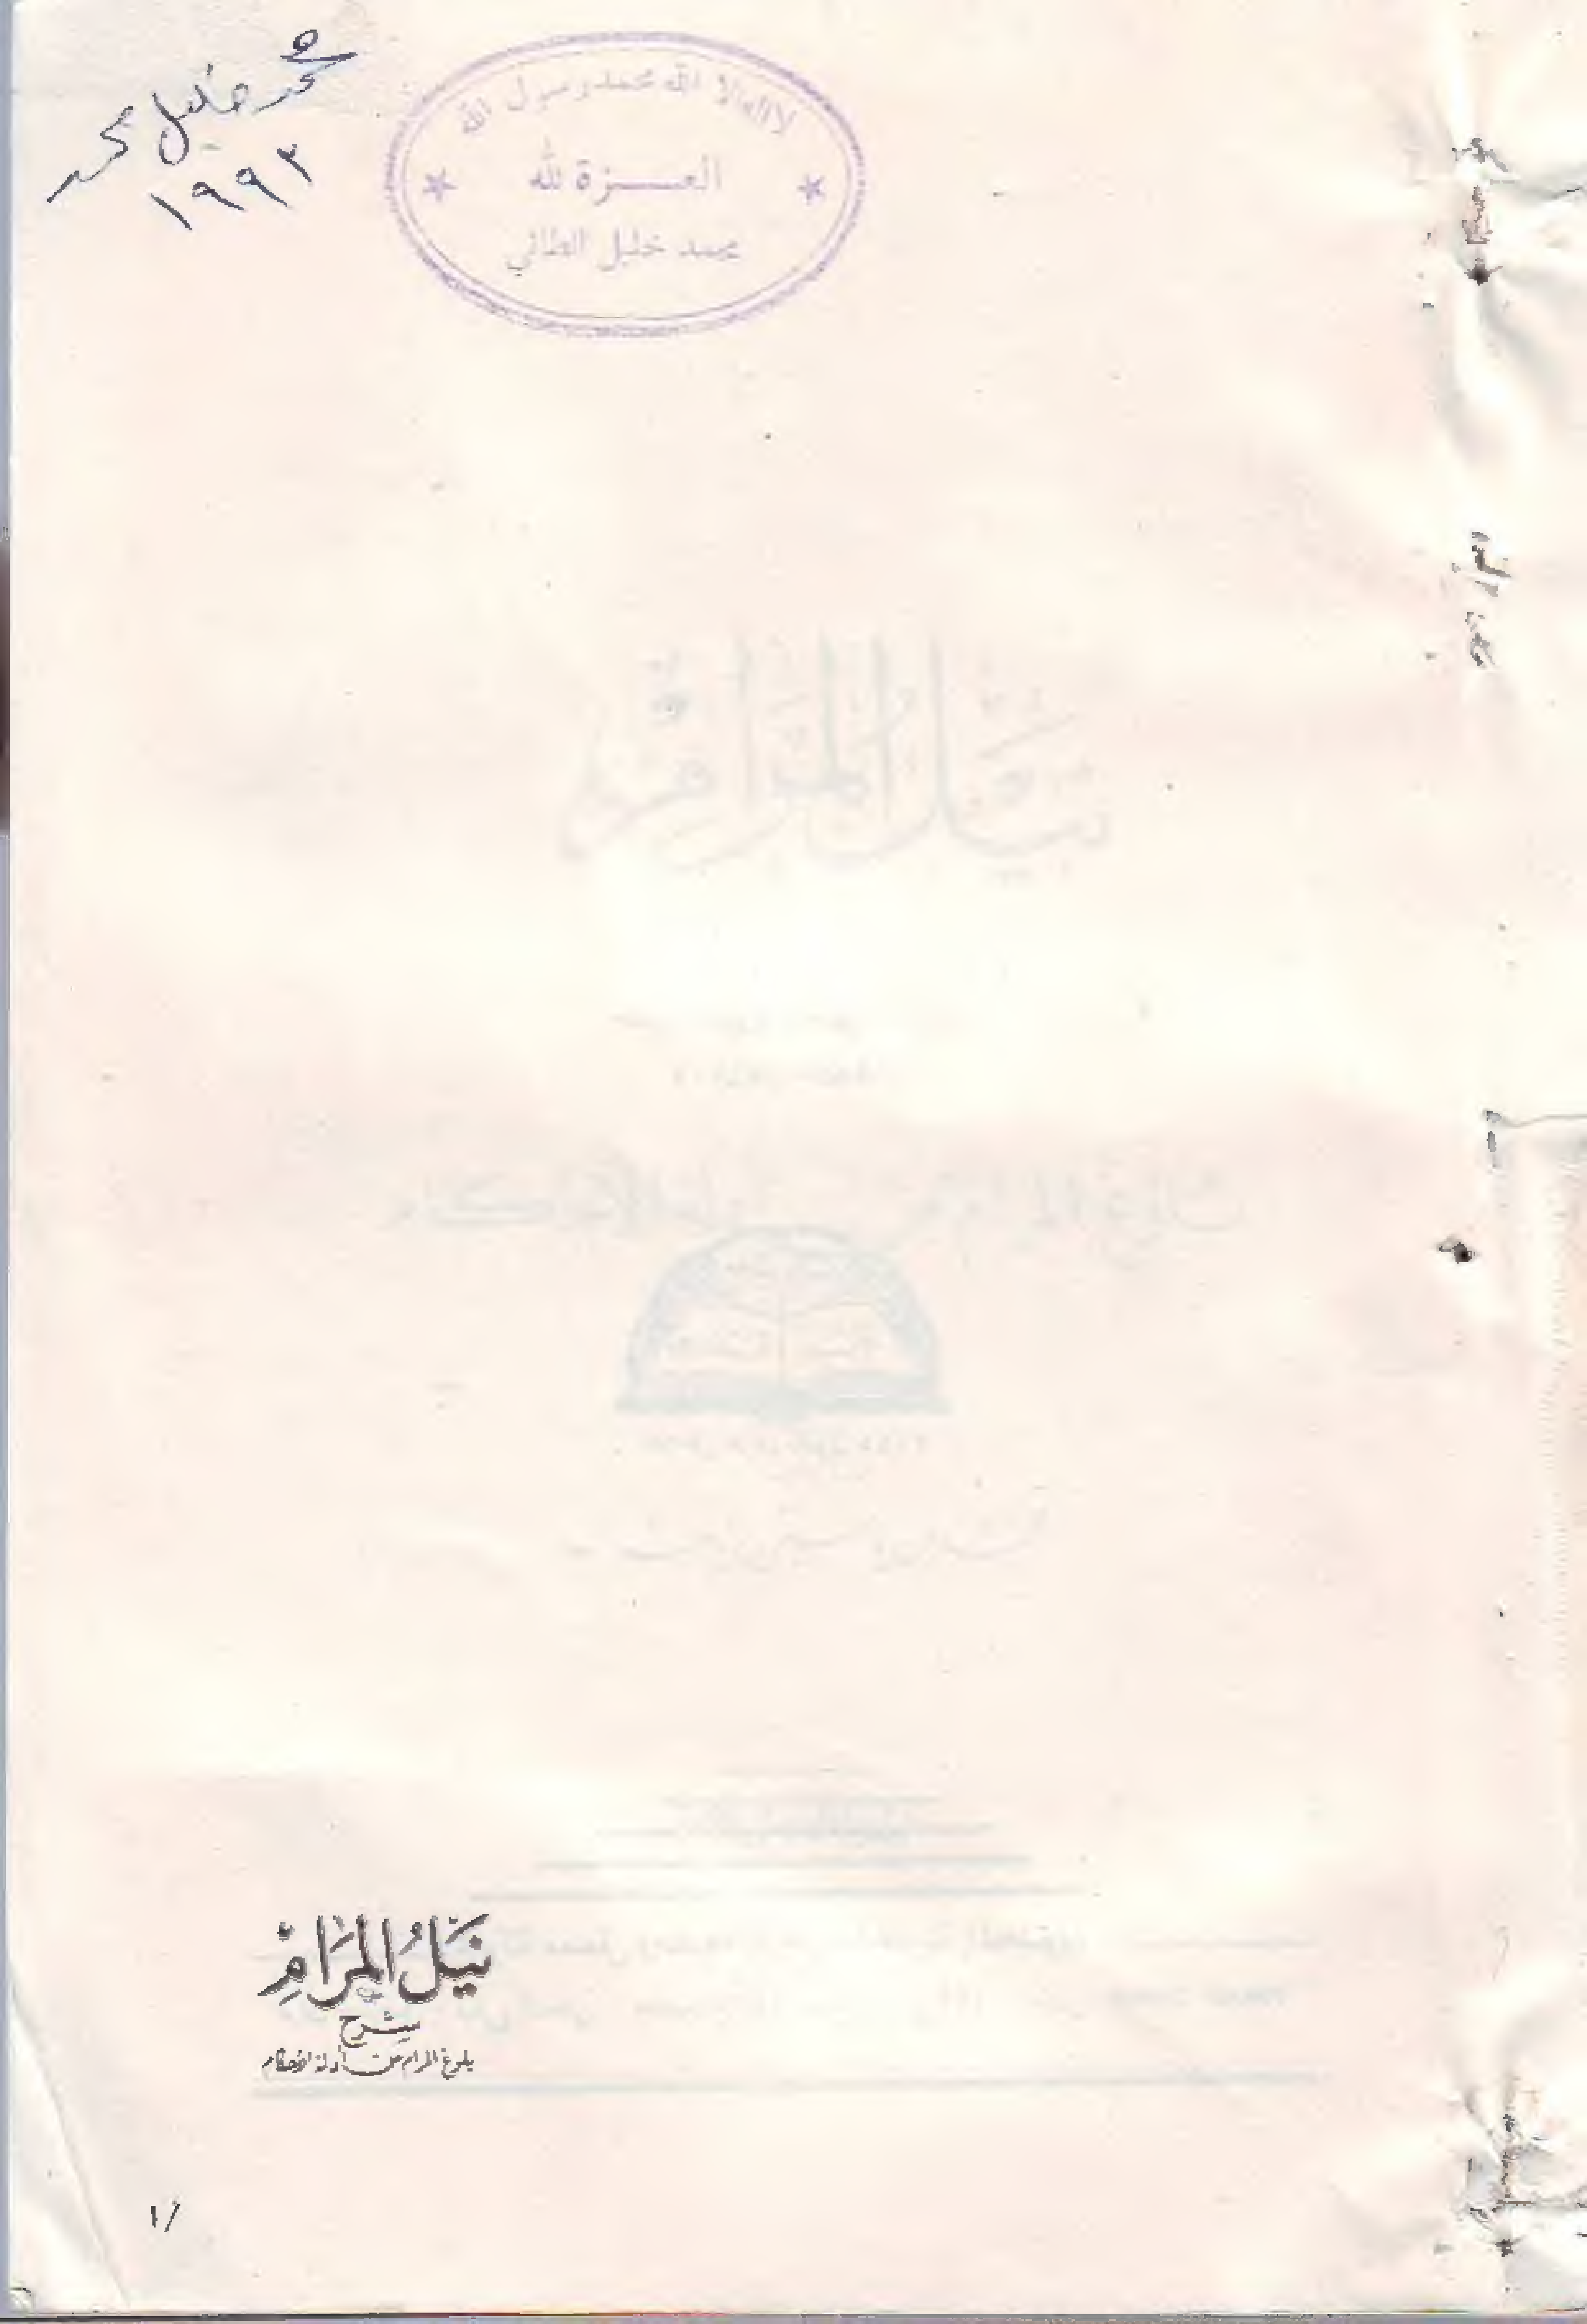 محمد خليل محمد
١٩٩٢
لا اله الا الله محمد رسول الله
العـــزة لله
محمد خليل الطائي
نَيْلُ المَرَامِ
شرح
بلوغ المرام من أدلة الأحكام
١/